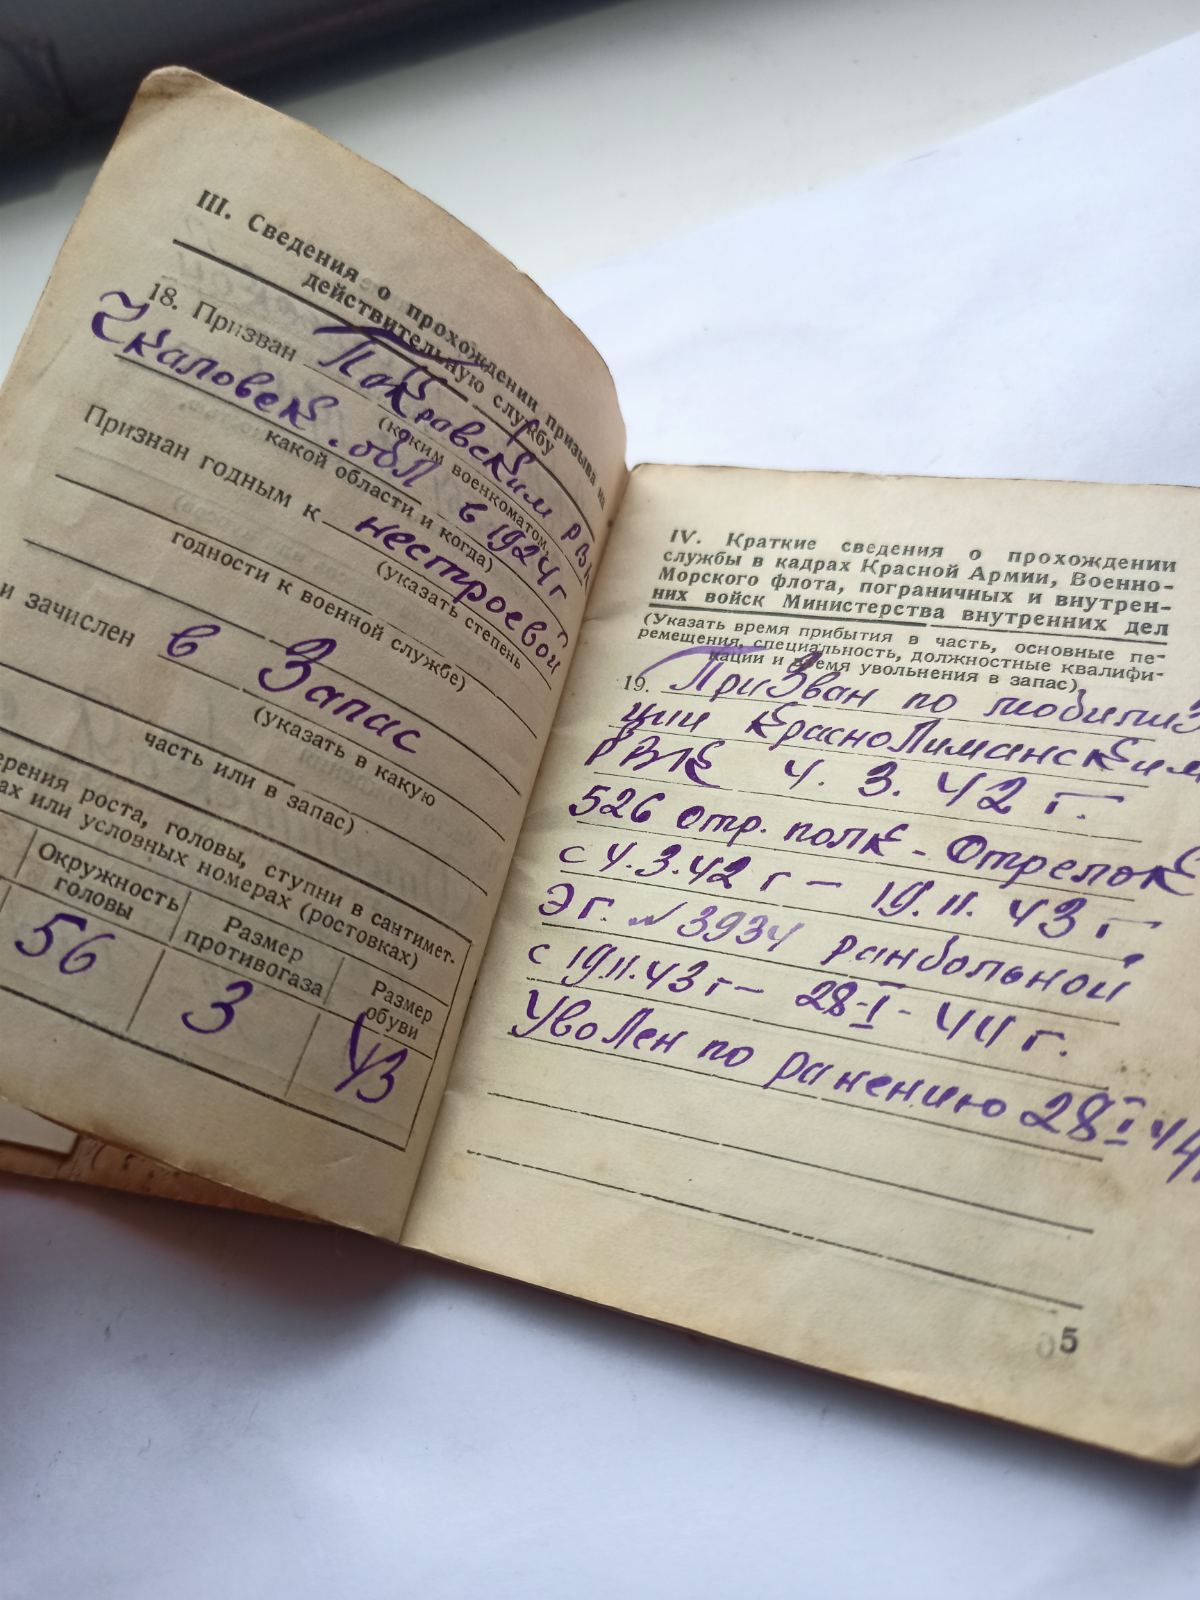 III. Сведения о прохождении призыва на
действительную службу
18. Призван Покровским РВК
(каким военкоматом,
Чкаловск. обл в 1924 г
какой области и когда)
Признан годным к нестроевой
(указать степень
годности к военной службе)
и зачислен в Запас
(указать в какую
часть или в запас)
ерения роста, головы, ступни в сантимет-
ах или условных номерах (ростовках)
Окружность головы
Размер противогаза
Размер обуви
56 3 43
IV. Краткие сведения о прохождении
службы в кадрах Красной Армии, Военно-
Морского флота, пограничных и внутрен-
них войск Министерства внутренних дел
(Указать время прибытия в часть, основные пе-
ремещения, специальность, должностные квалифи-
кации и время увольнения в запас)
19. Призван по мобилиз
ции КрасноЛиманским
РВК 4. 3. 42 г.
526 стр. полк - Стрелок
с 4.3.42 г - 19.11.43 г
Эг. № 3934 ранбольной
с 19.11.43 г - 28-I-44 г.
Уволен по ранению 28 I 44
5